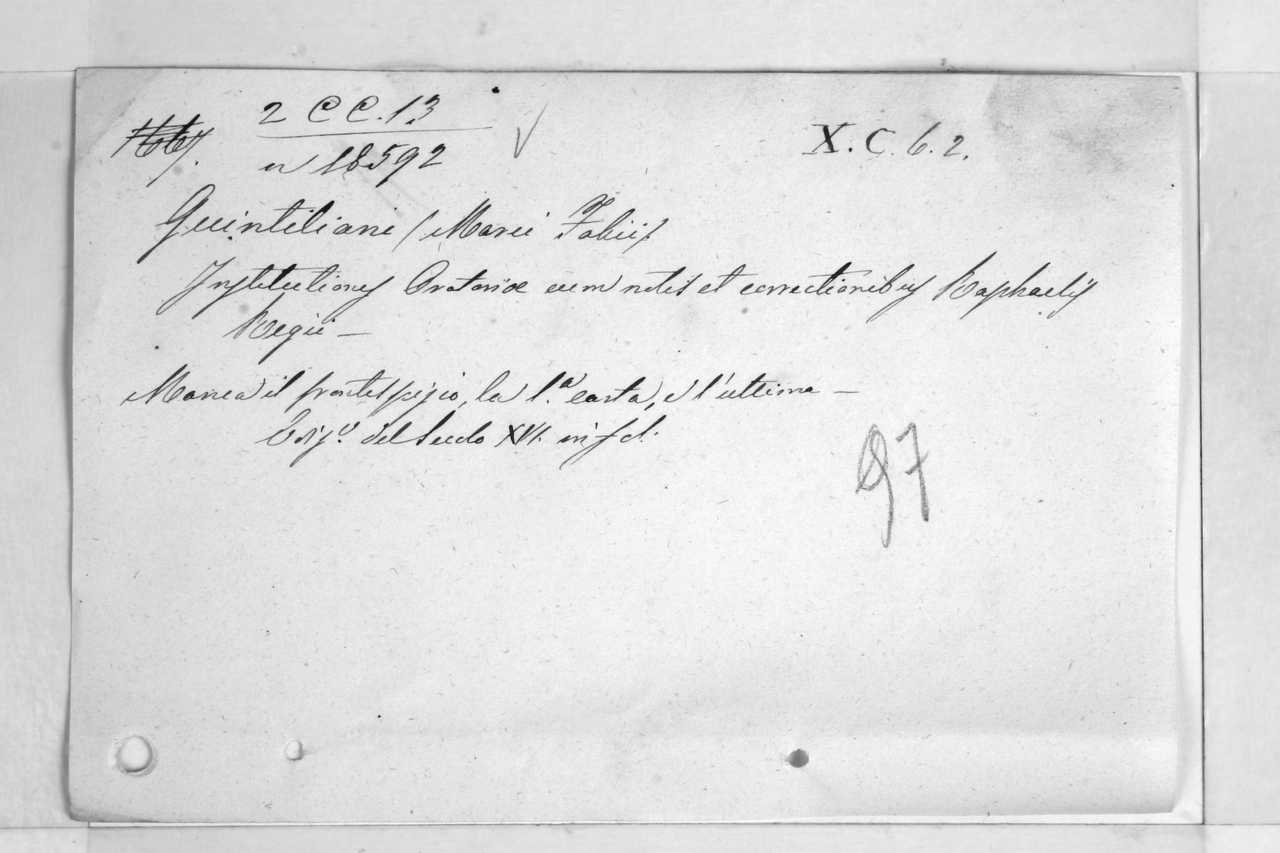 2 C C. 13
n 18592
X. C. 6. 2.
Quintiliani (Marci Fabii)
Institutiones Oratoriæ cum notis et correctionibus Raphaelis
Regii —
Manca il frontespizio, la 1.ª carta, e l'ultima —
del Secolo XVI. in fol.
97